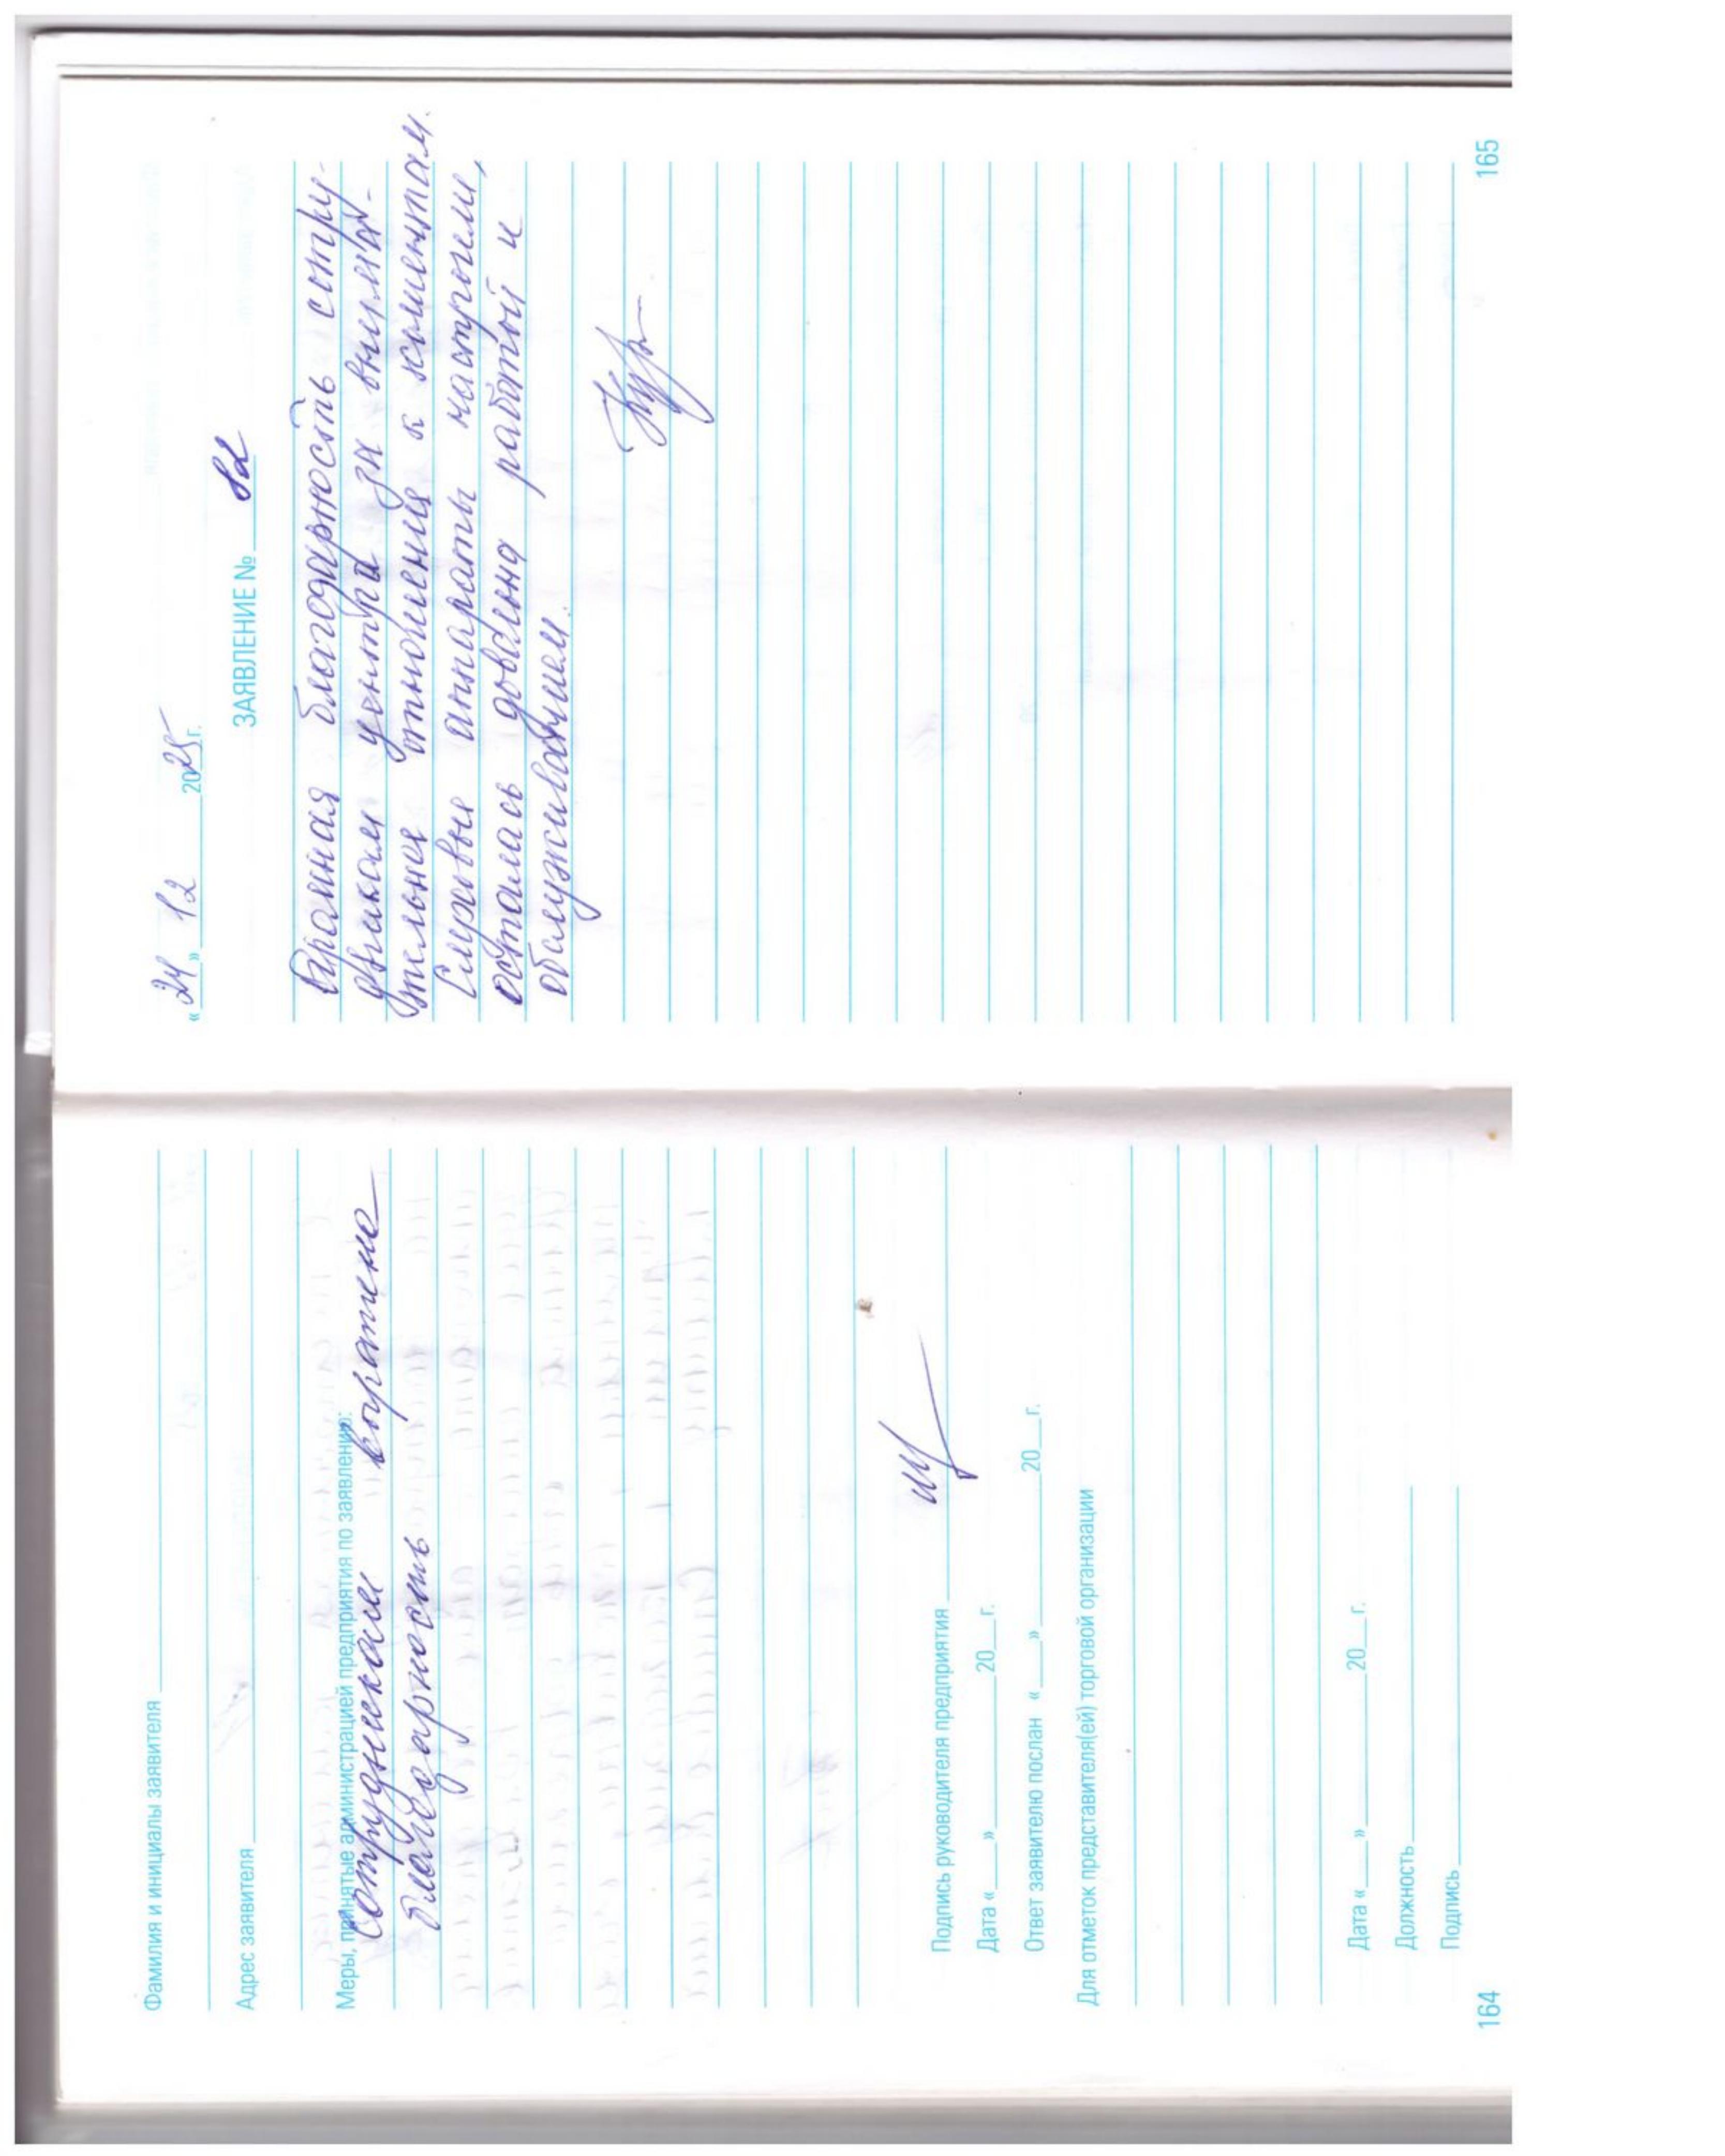 Фамилия и инициалы заявителя
Адрес заявителя
Меры, принятые администрацией предприятия по заявлению:
Сотрудникам выражена
благодарность
Подпись руководителя предприятия
Дата «___»________20__г.
Ответ заявителю послан «___»________20__г.
Для отметок представителя(ей) торговой организации
Дата «___»________20__г.
Должность
Подпись
164
«24» 12 2025г.
ЗАЯВЛЕНИЕ № 82
Огромная благодарность сотру-
дникам центра за внима-
тельное отношение к клиентам.
Слуховые аппараты настроили,
осталась довольна работой и
обслуживанием.
165